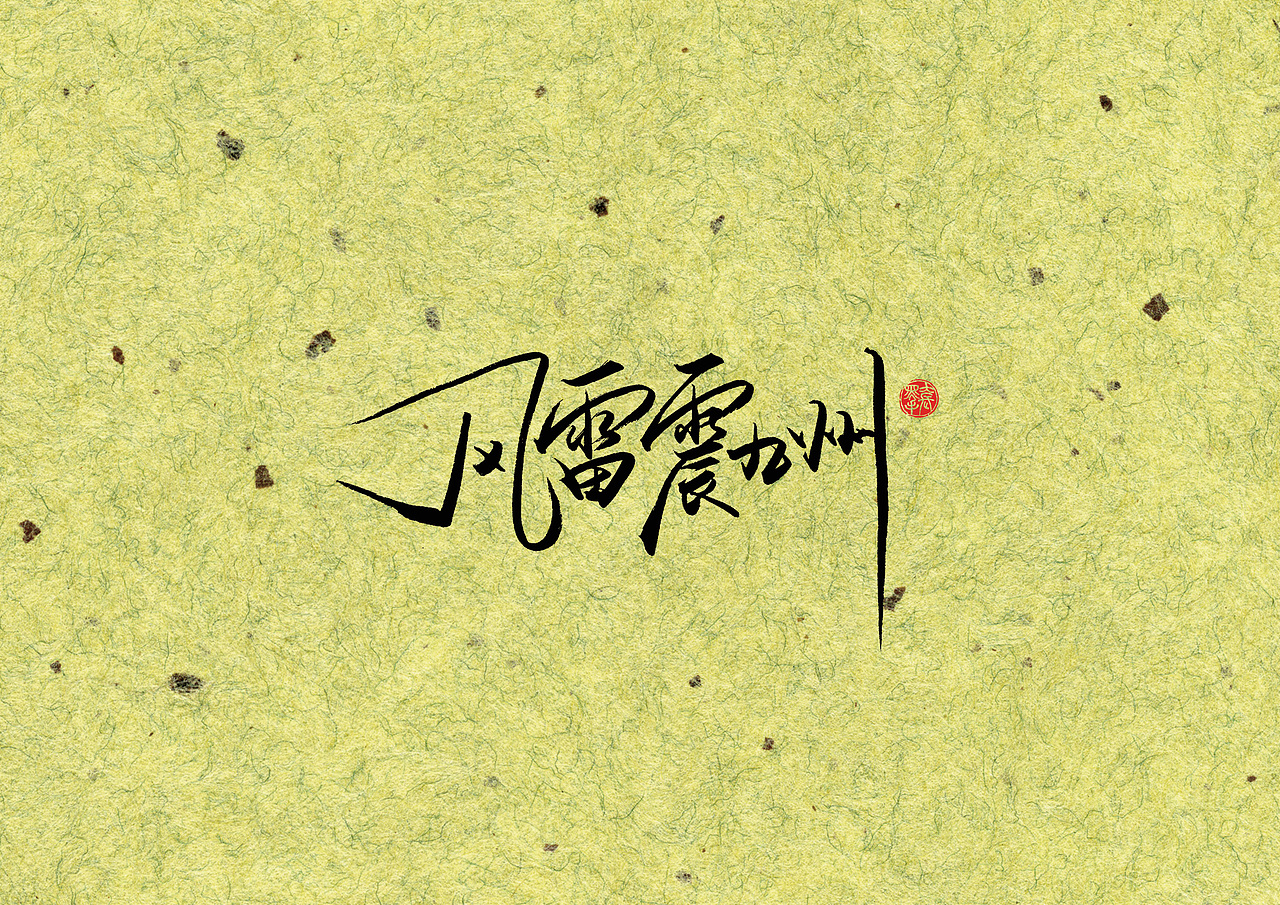 风雷震九州